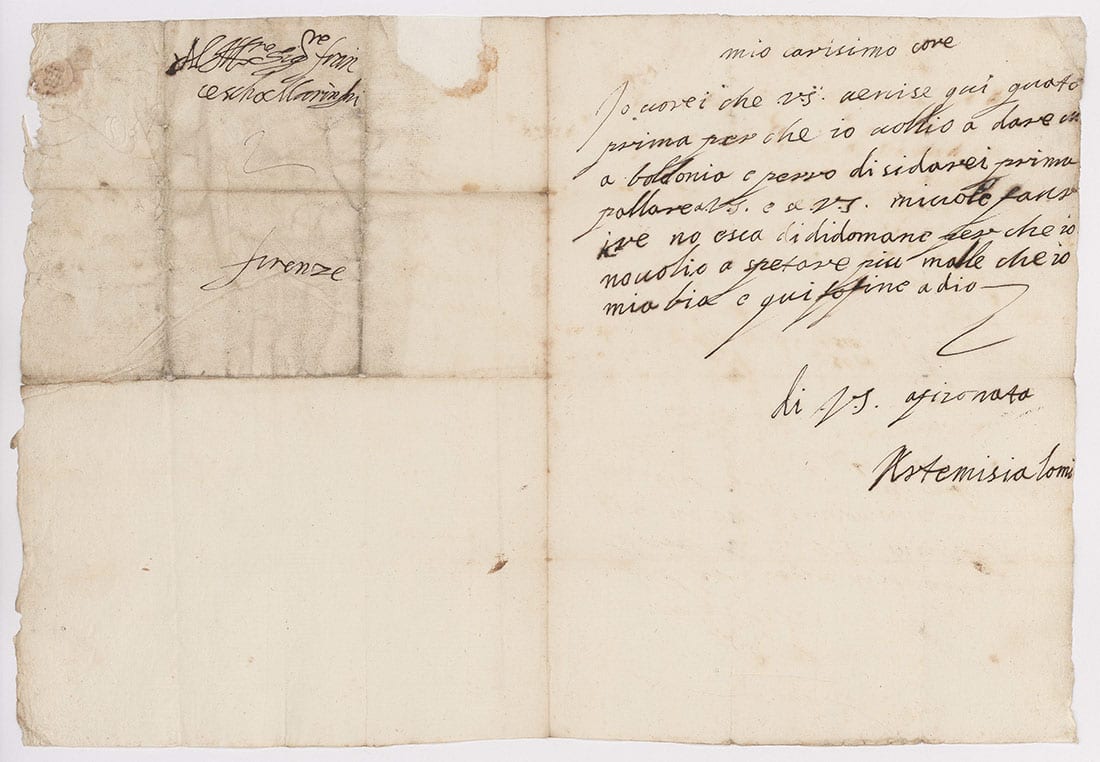 Al Mco Sigre fran
cescho Maringhi
firenze
mio carisimo core
Io vorei che vs. venise qui quato
prima perche io vollio a dare
a bollonia e perro disidarei prima
pallare a VS. e se V.S. mi vole
ire no esca di didomane perche io
no volio a spetare piu malle che io
mia bia e qui fo fine a dio
di VS. afizonata
Artemisia lomi